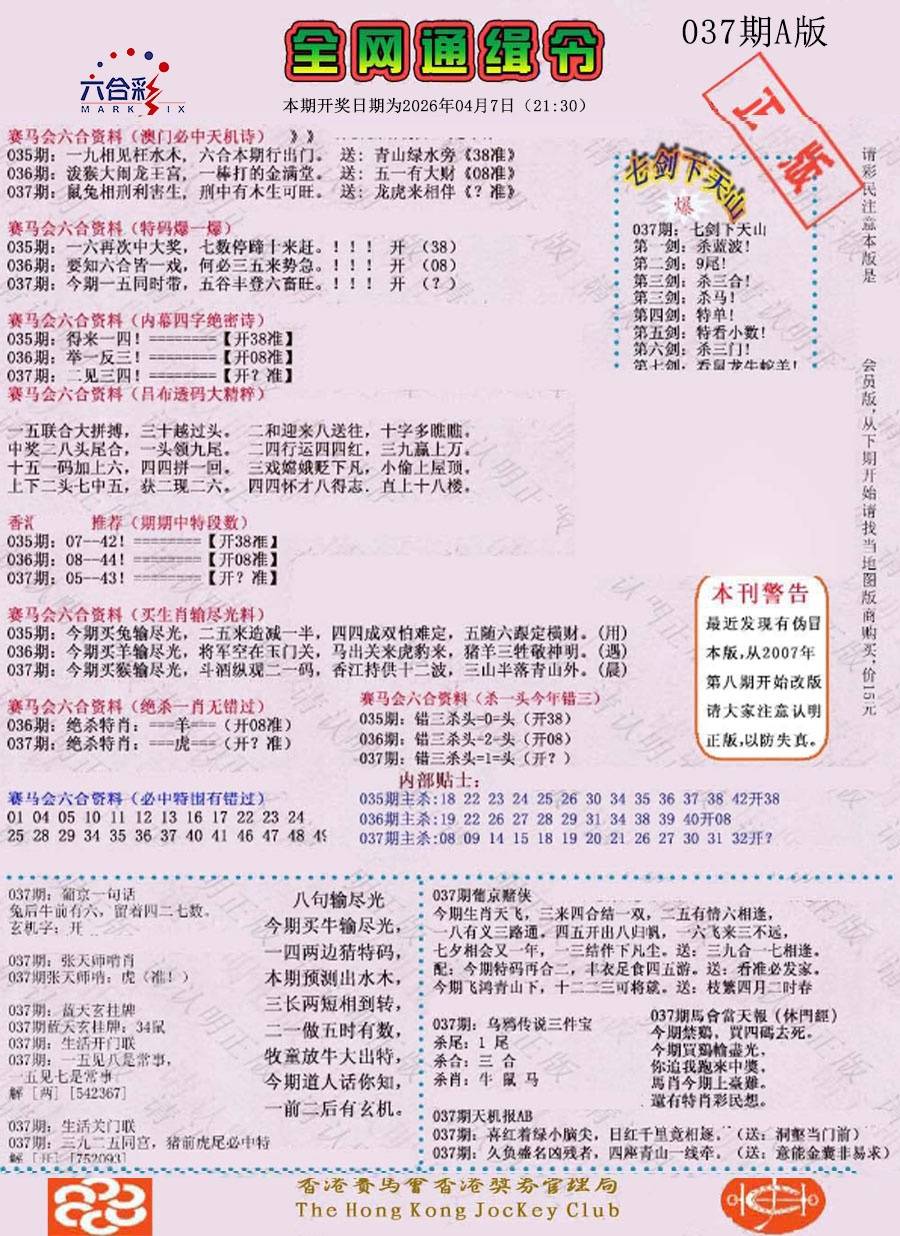 全网通缉令
037期A版
六合彩
MARK SIX
本期开奖日期为2026年04月7日（21:30）
正版
赛马会六合资料（澳门必中天机诗） 》》
035期: 一九相见枉水木, 六合本期行出门。 送: 青山绿水旁《38准》
036期: 泼猴大闹龙王宫, 一棒打的金满堂。 送: 五一有大财《08准》
037期: 鼠兔相刑利害生, 刑中有木生可旺。 送: 龙虎来相伴《? 准》
赛马会六合资料（特码爆一爆）
035期: 一六再次中大奖, 七数停蹄十来赶。! ! ! 开 （38）
036期: 要知六合皆一戏, 何必三五来势急。! ! ! 开 （08）
037期: 今期一五同时带, 五谷丰登六畜旺。! ! ! 开 （? ）
赛马会六合资料（内幕四字绝密诗）
035期: 得来一四! ========【开38准】
036期: 举一反三! ========【开08准】
037期: 二见三四! ========【开? 准】
赛马会六合资料（吕布透码大精粹）
一五联合大拼搏, 三十越过头。 二和迎来八送往, 十字多瞧瞧。
中奖二八头尾合, 一头领九尾。 二四行运四四红, 三九赢上万。
十五一码加上六, 四四拼一回。 三戏嫦娥贬下凡, 小偷上屋顶。
上下二头七中五, 获二现二六。 四四怀才八得志. 直上十八楼。
推荐（期期中特段数）
035期: 07--42! ========【开38准】
036期: 08--44! ========【开08准】
037期: 05--43! ========【开? 准】
赛马会六合资料（买生肖输尽光料）
035期: 今期买兔输尽光, 二五来造减一半, 四四成双怕难定, 五随六跟定横财。(用)
036期: 今期买羊输尽光, 将军空在玉门关, 马出关来虎豹来, 猪羊三牲敬神明。(遇)
037期: 今期买猴输尽光, 斗酒纵观二一码, 香江持供十二波, 三山半落青山外。(晨)
赛马会六合资料（绝杀一肖无错过）
036期: 绝杀特肖: ===羊===（开08准）
037期: 绝杀特肖: ===虎===（开? 准）
赛马会六合资料（杀一头今年错三）
035期: 错三杀头=0=头（开38）
036期: 错三杀头=2=头（开08）
037期: 错三杀头=1=头（开? ）
赛马会六合资料（必中特围有错过）
01 04 05 10 11 12 13 16 17 22 23 24
25 28 29 34 35 36 37 40 41 46 47 48 49
内部贴士:
035期主杀:18 22 23 24 25 26 30 34 35 36 37 38 42开38
036期主杀:19 22 26 27 28 29 31 34 38 39 40开08
037期主杀:08 09 14 15 18 19 20 21 26 27 30 31 32开?
七剑下天山
爆
037期: 七剑下天山
第一剑: 杀蓝波!
第二剑: 9尾!
第三剑: 杀三合!
第三剑: 杀马!
第四剑: 特单!
第五剑: 特看小数!
第六剑: 杀三门!
第七剑: 看鼠龙牛蛇羊!
请彩民注意本版是
会员版,从下期开始请找当地图版商购买,价15元
本刊警告
最近发现有伪冒
本版,从2007年
第八期开始改版
请大家注意认明
正版,以防失真。
037期: 葡京一句话
兔后牛前有六, 留着四二七数。
玄机字: 开
037期: 张天师哨肖
037期张天师哨: 虎（准! ）
037期: 蓝天玄挂牌
037期蓝天玄挂牌: 34鼠
037期: 生活开门联
037期: 一五见八是常事,
一五见七是常事
解 [两] [542367]
037期: 生活关门联
037期: 三九二五同宫, 猪前虎尾必中特
解 [开] [752093]
八句输尽光
今期买牛输尽光,
一四两边猜特码,
本期预测出水木,
三长两短相到转,
二一做五时有数,
牧童放牛大出特,
今期道人话你知,
一前二后有玄机。
037期葡京赌侠
今期生肖天飞, 三来四合结一双, 二五有情六相逢,
一八有义三路通。四五开出八归帆, 一六飞来三不远,
七夕相会又一年, 一三结伴下凡尘。送: 三九合一七相逢。
配: 今期特码再合二, 丰衣足食四五游。送: 香准必发家。
今期飞鸿青山下, 十二二三可将箴。送: 枝繁四月二时春
037期: 乌鸦传说三件宝
杀尾: 1 尾
杀合: 三 合
杀肖: 牛 鼠 马
037期馬會當天報（休門經）
今期禁鷄, 買四碼去死。
今期買鷄輸盡光,
你追我跑來中獎,
馬肖今期上臺難。
還有特肖彩民想。
037期天机报AB
037期: 喜红着绿小脑尖, 日红千里竟相逐。（送: 洞壑当门前）
037期: 久负盛名凶残者, 四座青山一线牵。（送: 意能金囊非易求）
香港賽馬會香港獎券管理局
The Hong Kong JocKey Club